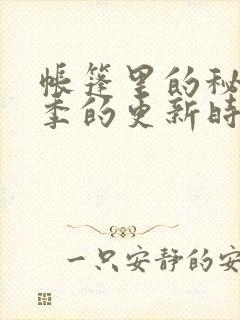 帐篷里的秘
季的更新时
一只安静的安